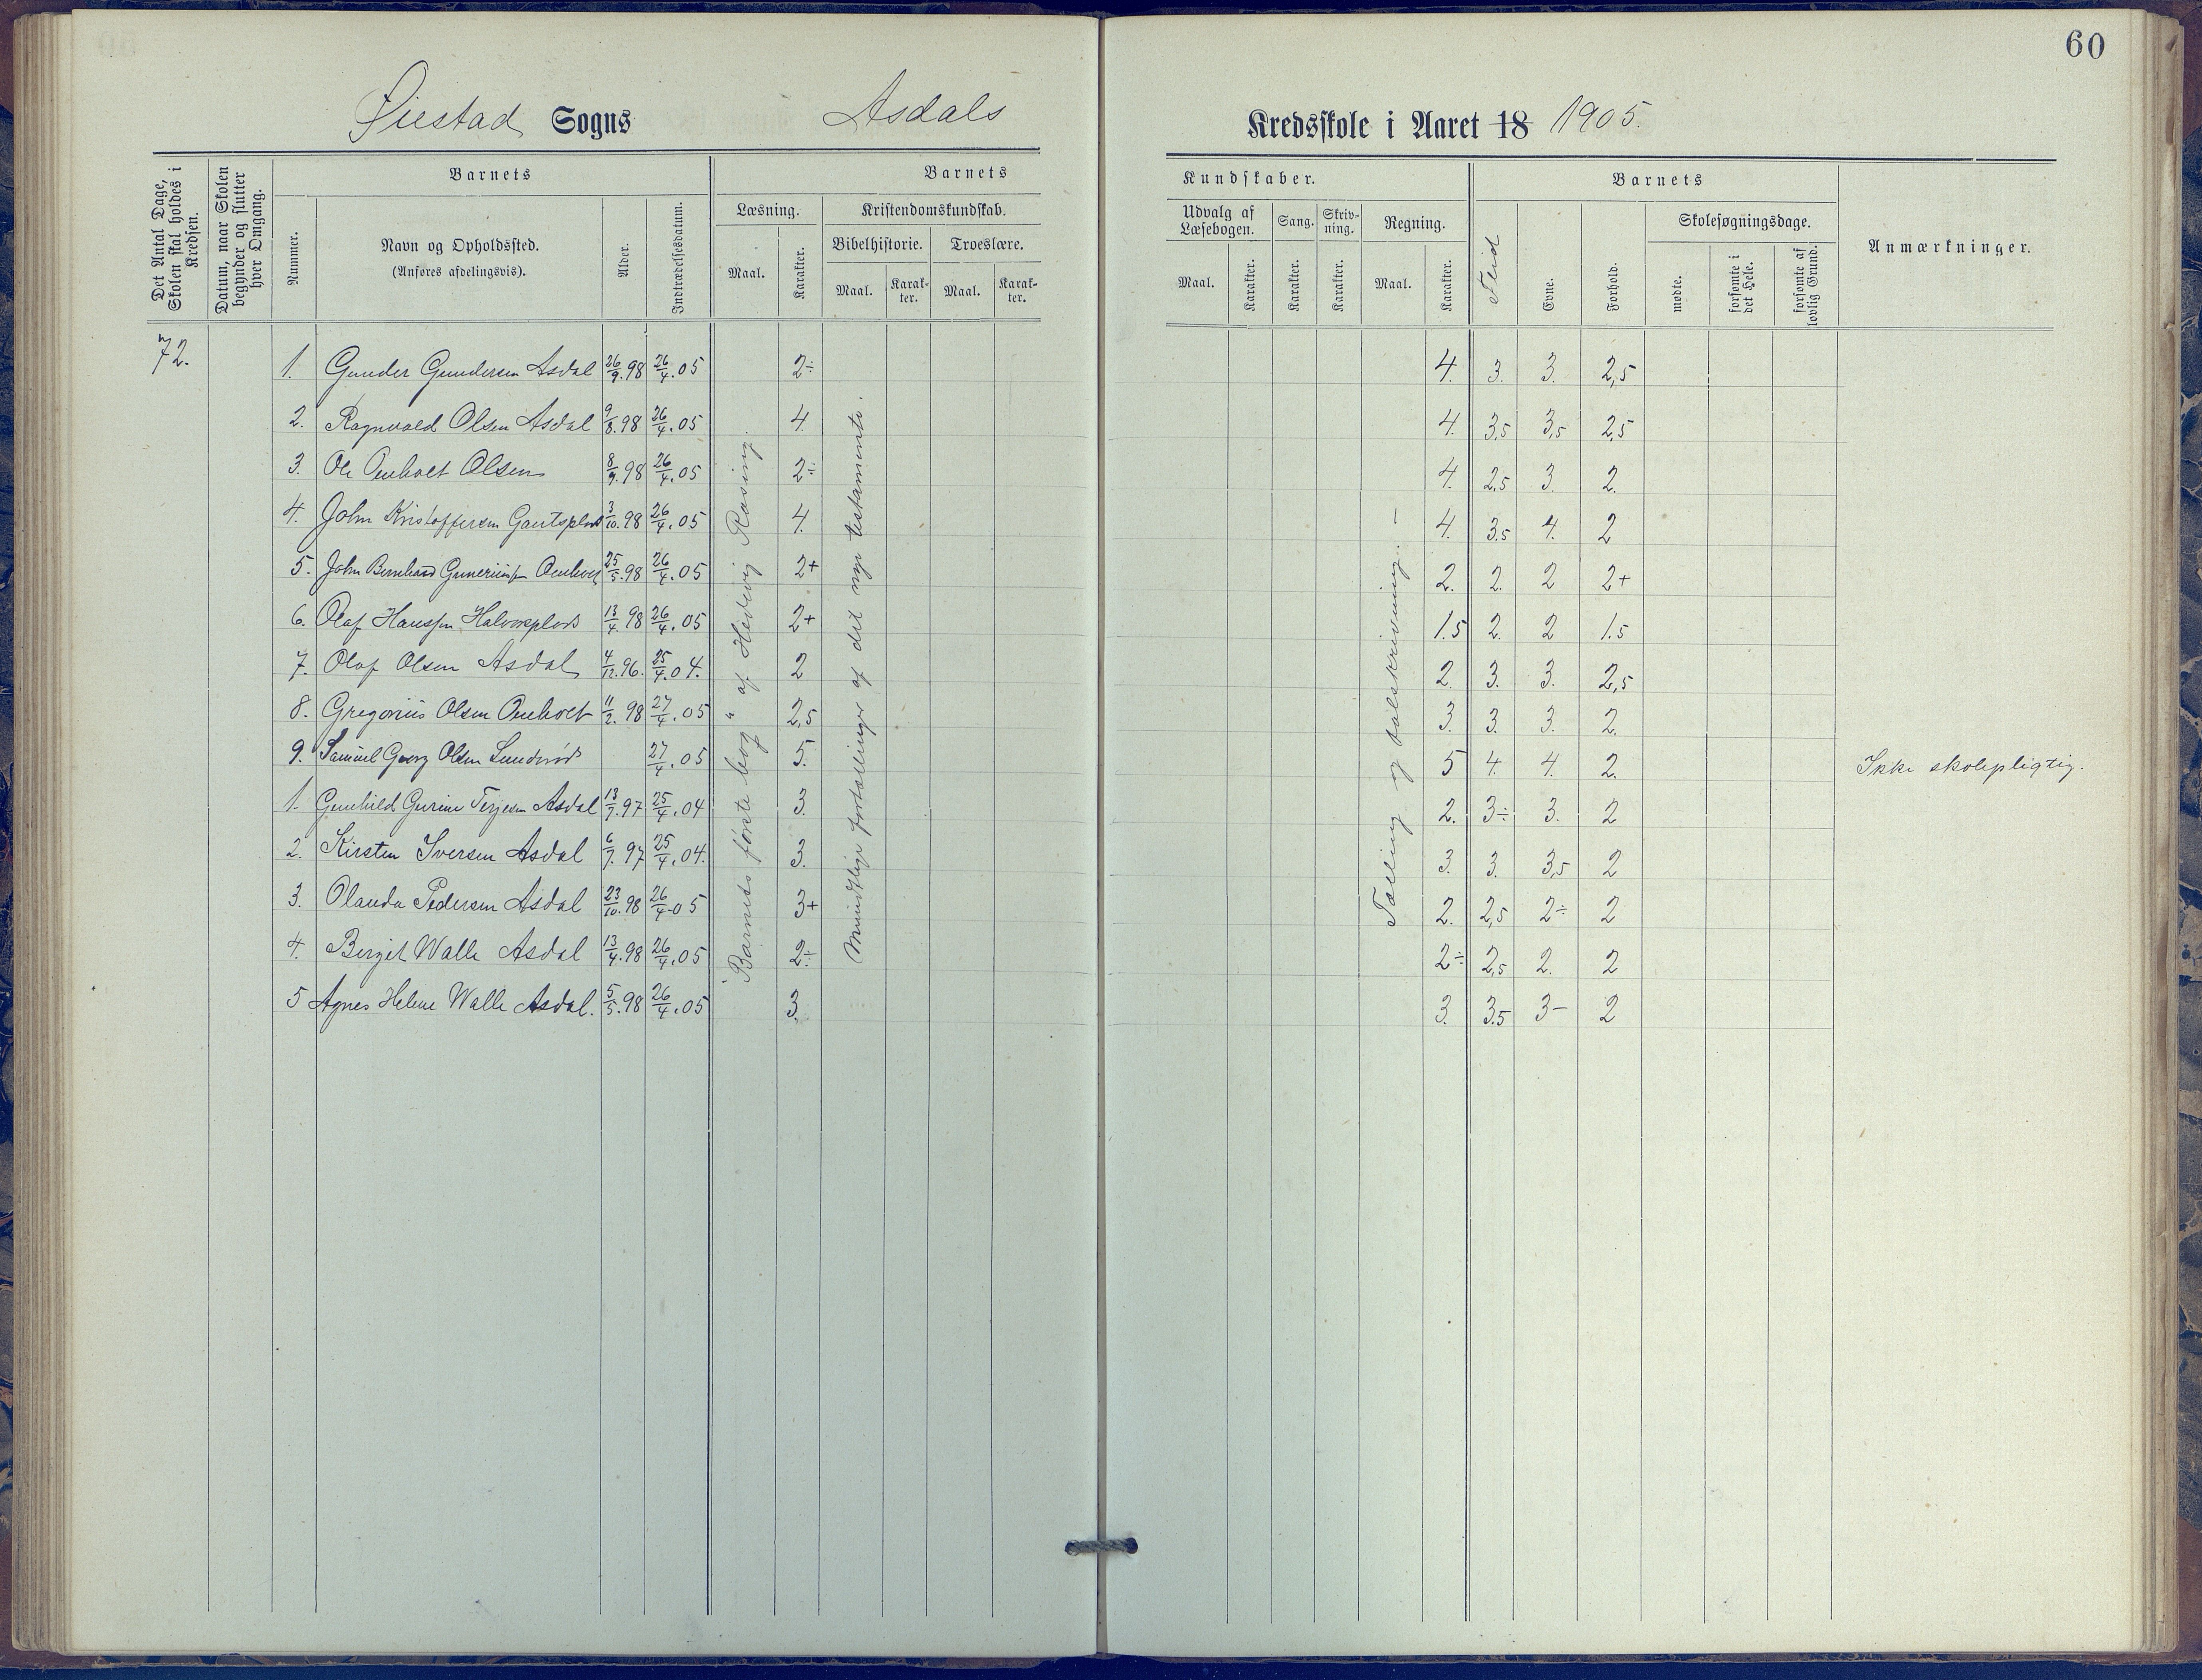 60
Øiestad Sogns Asdals Kredsskole i Aaret 18 1905.
Det Antal Dage, Skolen skal holdes i Kredsen.
Datum, naar Skolen begynder og slutter hver Omgang.
Barnets
Nummer.
Navn og Opholdssted.
(Anføres afdelingsvis).
Alder.
Indtrædelsesdatum.
Barnets Kundskaber.
Læsning.
Maal.
Karakter.
Kristendomskundskab.
Bibelhistorie.
Maal.
Karakter.
Troeslære.
Maal.
Karakter.
Udvalg af Læsebogen.
Maal.
Karakter.
Sang.
Karakter.
Skrivning.
Karakter.
Regning.
Maal.
Karakter.
Barnets
Flid
Evne.
Forhold.
Skolesøgningsdage.
mødte.
forsømte i det Hele.
forsømte af lovlig Grund.
Anmærkninger.
72.
1. Gunder Gundersen Asdal 26/9.98 26/4.05 2÷ 4. 3. 3. 2,5
2. Ragnvald Olsen Asdal 9/8.98 26/4.05 4. 4. 3,5 3,5 2,5
3. Ole Omholt Olsen 8/9.98 26/4.05 2÷ 4. 2,5 3. 2.
4. John Kristoffersen Gautsplads 3/10.98 26/4.05 4. 4. 3.5 4. 2
5. John Bernhard Omholt 25/5.98 26/4.05 2+ 2. 2. 2 2+
6. Olaf Hanssen Halvorsplads 13/4.98 26/4.05 2+ 1.5 2. 2 1.5
7. Olaf Olsen Asdal 4/12.96. 25/4.04. 2 2. 3. 3. 2,5
8. Gregorius Olsen Omholt 11/2.98 27/4.05 2,5 3. 3. 3. 2.
9. Samuel Georg Olsen 27/4.05 5. 5 4. 4. 2. Ikke skolepligtig.
1. Gunhild Gurine Terjesen Asdal 13/7.97 25/4.04 3. 2. 3÷ 3. 2
2. Kirsten Iversen Asdal 6/7.97 25/4.04. 3. 3. 3. 3,5 2
3. Olanda Pedersen Asdal 23/10.98 26/4.05 3+ 2. 2,5 2÷ 2
4. Bergit Walle Asdal 13/4.98 26/4.05 2÷ 2÷ 2,5 2. 2
5 Agnes Helene Walle Asdal. 5/5.98 26/4.05 3. 3. 3.5 3- 2
"Barnets første bog" af Hedevig Rosing.
Mundtlige fortællinger af det nye testamente.
Tælling og talskrivning. —